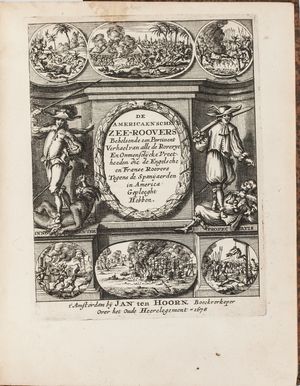 DE
AMERICAENSCHE
ZEE-ROOVERS
Behelsende een Pertinent
Verhael van alle de Roverye
En Onmenschelycke Vreet-
heeden die de Engelsche
en Franse Roovers
Tegens de Spanjaerden
in America
Gepleeght
Hebben.
t'Amsterdam bij JAN ten HOORN. Boeckverkoper
Over het Oude Heerelogement. 1678